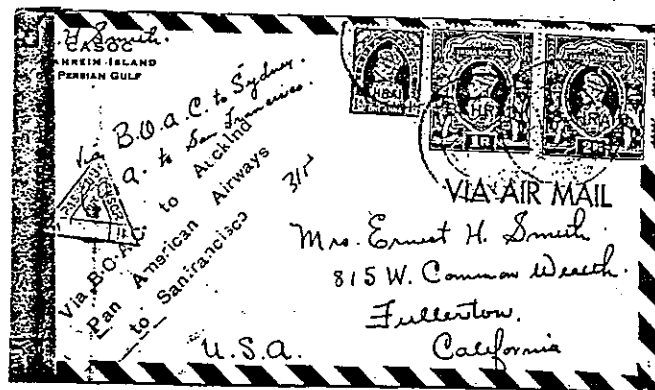 H Smith.
CASOC
AHREIN-ISLAND
PERSIAN GULF
Via B.O.A.C. to Sydney.
a. to San Francisco.
Via B·O·A·C. to Auckland
Pan American Airways
to Sanfrancisco
3/1
INDIA POSTAGE
1R
INDIA POSTAGE
VIA AIR MAIL
Mrs. Ernest H. Smith.
815 W. Common Wealth.
Fullerton,
California
U.S.A.